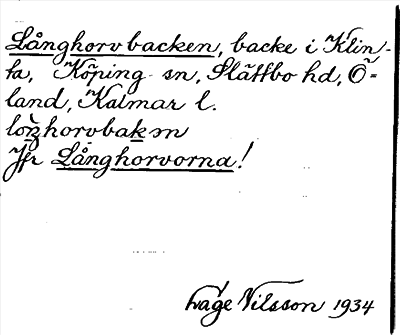 Långhorvbacken, backe i Klin-
ta, Köping sn, Slättbo hd, Ö=
land, Kalmar l.
Jfr Långhorvorna!
Låge Nilsson 1934